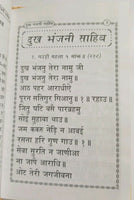 दुख भंजनी साहिब
दुख भंजनी साहिब
दुख भंजनु तेरा नामु जी
दुख भंजनु तेरा नामु ॥
आठ पहर आराधीऐ
पूरन सतिगुर गिआनु ॥ १ ॥ रहाउ ॥
जितु घटि वसै पारब्रहमु
सोई सुहावा थाउ ॥
जम कंकरु नेड़ि न आवई
रसना हरि गुण गाउ ॥ १ ॥
सेवा सुरति न जाणीआ
ना जापै आराधि ॥
ओट तेरी जगजीवना